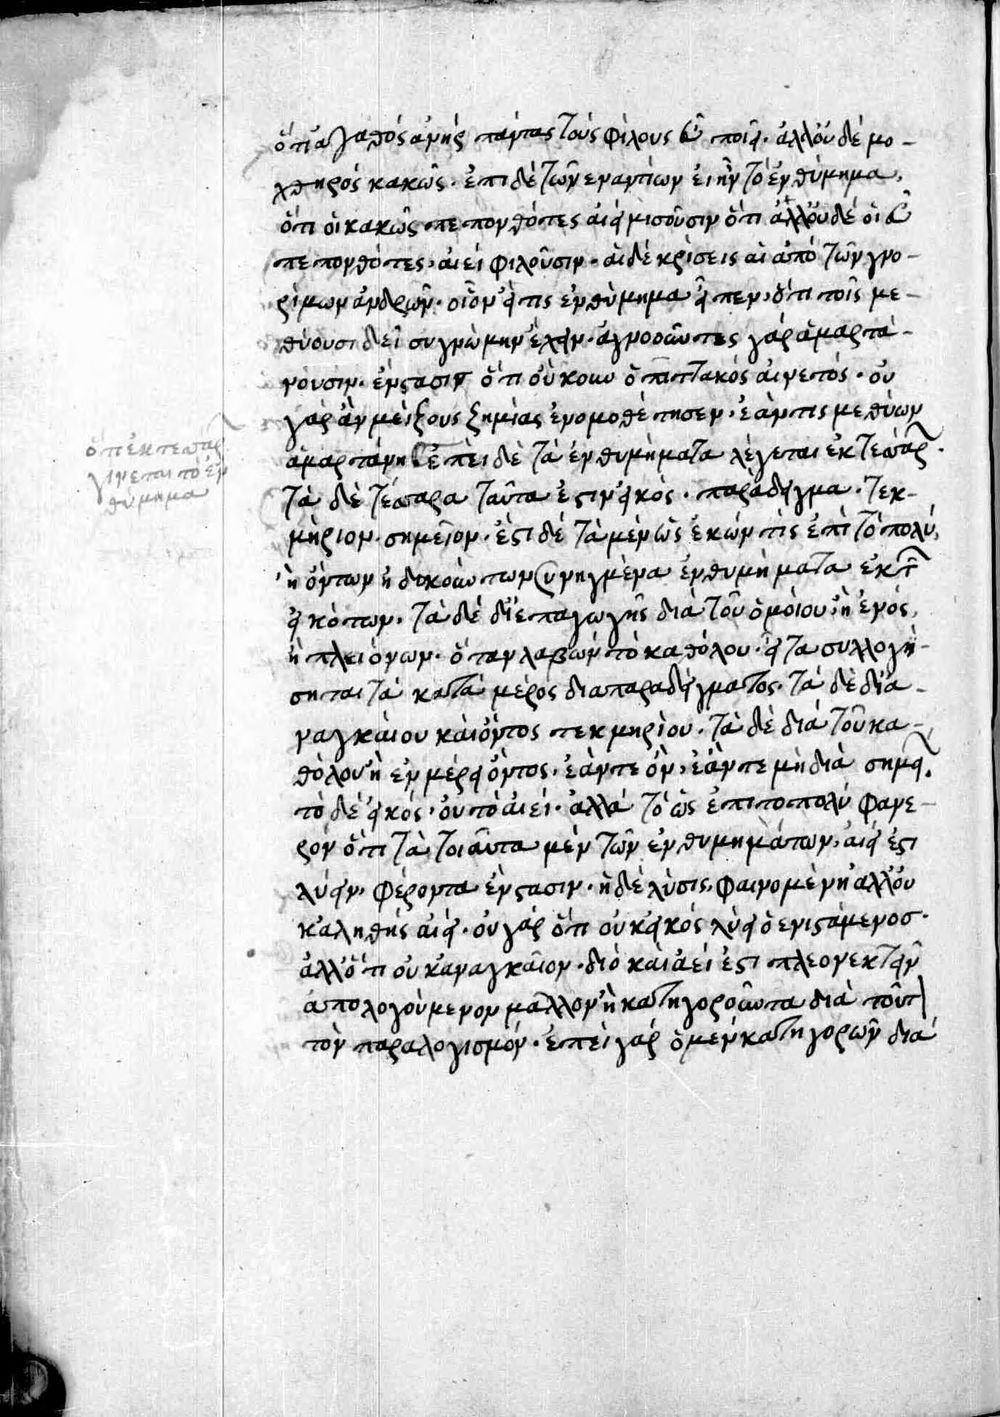 ὅτι ἀγαθὸς ἀνὴρ πάντας τοὺς φίλους εὖ ποιεῖ· ἀλλ' οὐδὲ μο-
χθηρὸς κακῶς· ἐπὶ δὲ τῶν ἐναντίων εἰ ἦν τὸ ἐνθύμημα,
ὅτι οἱ κακῶς πεπονθότες αἰεὶ μισοῦσιν ὅτι ἀλλ' οὐδὲ οἱ εὖ
πεπονθότες, αἰεὶ φιλοῦσιν· αἱ δὲ κρίσεις αἱ ἀπὸ τῶν γνο-
ρίμων ἀνδρῶν· οἷον εἴ τις ἐνθύμημα εἶπεν, ὅτι τοῖς με-
θύουσι δεῖ συγνώμην ἔχειν· ἀγνοοῦντες γὰρ ἁμαρτά-
νουσιν· ἔνστασις ὅτι οὔκουν ὁ πιττακὸς αἰνετός· οὐ
γὰρ ἂν μείζους ζημίας ἐνομοθέτησεν· ἐάν τις μεθύων
ἁμαρτάνῃ ἐπεὶ δὲ τὰ ἐνθυμήματα λέγεται ἐκ τεσσάρ·
τὰ δὲ τέσσαρα ταῦτα ἐστιν εἰκός· παράδειγμα· τεκ-
μήριον· σημεῖον· ἔστι δὲ τὰ μὲν ὡς ἐκ τῶν τις ἐπὶ τὸ πολύ,
ἢ ὄντων ἢ δοκούντων συνηγμένα ἐνθυμήματα ἐκ τ
εἰκότων· τὰ δὲ δι' ἐπαγωγῆς διὰ τοῦ ὁμοίου, ἢ ἑνὸς,
ἢ πλειόνων· ὅταν λαβὼν τὸ καθόλου· εἶτα συλλογή-
σηται τὰ κατὰ μέρος διαπαραδείγματος· τὰ δὲ δι' ἀ-
ναγκαίου καὶ ὄντος τεκμηρίου· τὰ δὲ διὰ τοῦ κα-
θόλου ἢ ἐν μέρει ὄντος· ἐάν τε ὄν, ἐάν τε μὴ διὰ σημεί·
τὸ δὲ εἰκός· οὐ τὸ αἰεί· ἀλλὰ τὸ ὡς ἐπιτοπολὺ φανε-
ρὸν ὅτι τὰ τοιαῦτα μὲν τῶν ἐνθυμημάτων, αἰεὶ ἔστι
λύειν, φέροντα ἔνστασιν· ἡ δὲ λύσις, φαινομένη ἀλλ' οὐ
κ'αληθὴς αἰεί· οὐ γὰρ ὅτι οὐκ εἰκὸς λύει ὁ ἐνιστάμενος·
ἀλλ' ὅτι οὐκ ἀναγκαῖον· διὸ καὶ ἀεὶ ἔστι πλεονεκτεῖν
ἀπολογούμενον μᾶλλον ἢ κατηγοροῦντα διὰ τοῦτ
τὸν παραλογισμόν· ἐπεὶ γὰρ ὁ μὲν κατηγορῶν διὰ
ὅτι ἐκ τεσσάρ
γίνεται τὸ ἐν
θύμημα